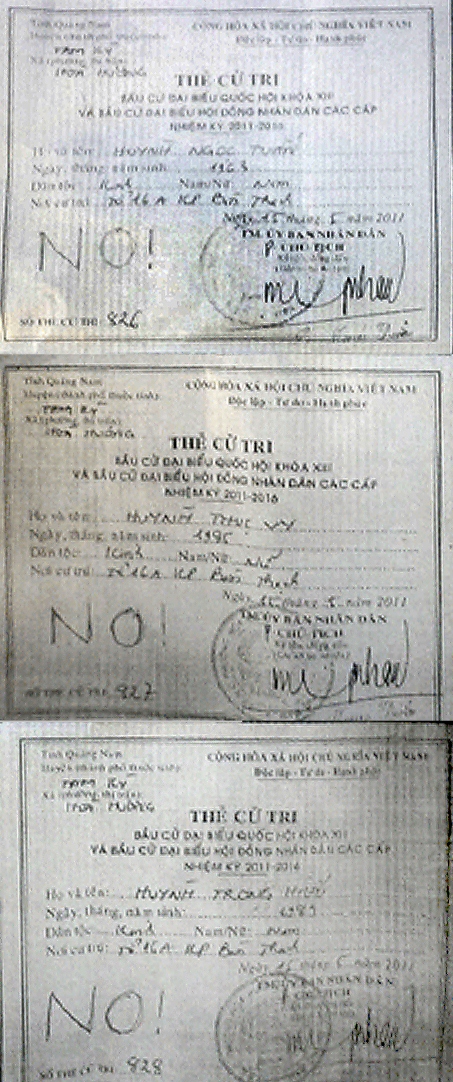 Tỉnh Quảng Nam
CỘNG HÒA XÃ HỘI CHỦ NGHĨA VIỆT NAM
TAM KỲ
Độc lập - Tự do - Hạnh phúc
Xã (phường, thị trấn):
HÒA HƯƠNG
THẺ CỬ TRI
BẦU CỬ ĐẠI BIỂU QUỐC HỘI KHÓA XIII
VÀ BẦU CỬ ĐẠI BIỂU HỘI ĐỒNG NHÂN DÂN CÁC CẤP
NHIỆM KỲ 2011-2016
Họ và tên: HUỲNH NGỌC TUẤN
Ngày, tháng, năm sinh: 1963
Dân tộc: Kinh Nam/Nữ: Nam
Nơi cư trú: Tổ 16A KP Bàn Thạch
Ngày 15 tháng 5 năm 2011
TM. ỦY BAN NHÂN DÂN
CHỦ TỊCH
NO!
SỐ THẺ CỬ TRI: 826
Tỉnh Quảng Nam
CỘNG HÒA XÃ HỘI CHỦ NGHĨA VIỆT NAM
TAM KỲ
Độc lập - Tự do - Hạnh phúc
Xã (phường, thị trấn):
HÒA HƯƠNG
THẺ CỬ TRI
BẦU CỬ ĐẠI BIỂU QUỐC HỘI KHÓA XIII
VÀ BẦU CỬ ĐẠI BIỂU HỘI ĐỒNG NHÂN DÂN CÁC CẤP
NHIỆM KỲ 2011-2016
Họ và tên: HUỲNH THỤC VY
Ngày, tháng, năm sinh: 1985
Dân tộc: Kinh Nam/Nữ: Nữ
Nơi cư trú: Tổ 16A KP Bàn Thạch
Ngày 15 tháng 5 năm 2011
TM. ỦY BAN NHÂN DÂN
CHỦ TỊCH
NO!
SỐ THẺ CỬ TRI: 827
Tỉnh Quảng Nam
CỘNG HÒA XÃ HỘI CHỦ NGHĨA VIỆT NAM
TAM KỲ
Độc lập - Tự do - Hạnh phúc
Xã (phường, thị trấn):
HÒA HƯƠNG
THẺ CỬ TRI
BẦU CỬ ĐẠI BIỂU QUỐC HỘI KHÓA XIII
VÀ BẦU CỬ ĐẠI BIỂU HỘI ĐỒNG NHÂN DÂN CÁC CẤP
NHIỆM KỲ 2011-2016
Họ và tên: HUỲNH TRỌNG HIẾU
Ngày, tháng, năm sinh: 1989
Dân tộc: Kinh Nam/Nữ: Nam
Nơi cư trú: Tổ 16A KP Bàn Thạch
Ngày 15 tháng 5 năm 2011
TM. ỦY BAN NHÂN DÂN
CHỦ TỊCH
NO!
SỐ THẺ CỬ TRI: 828